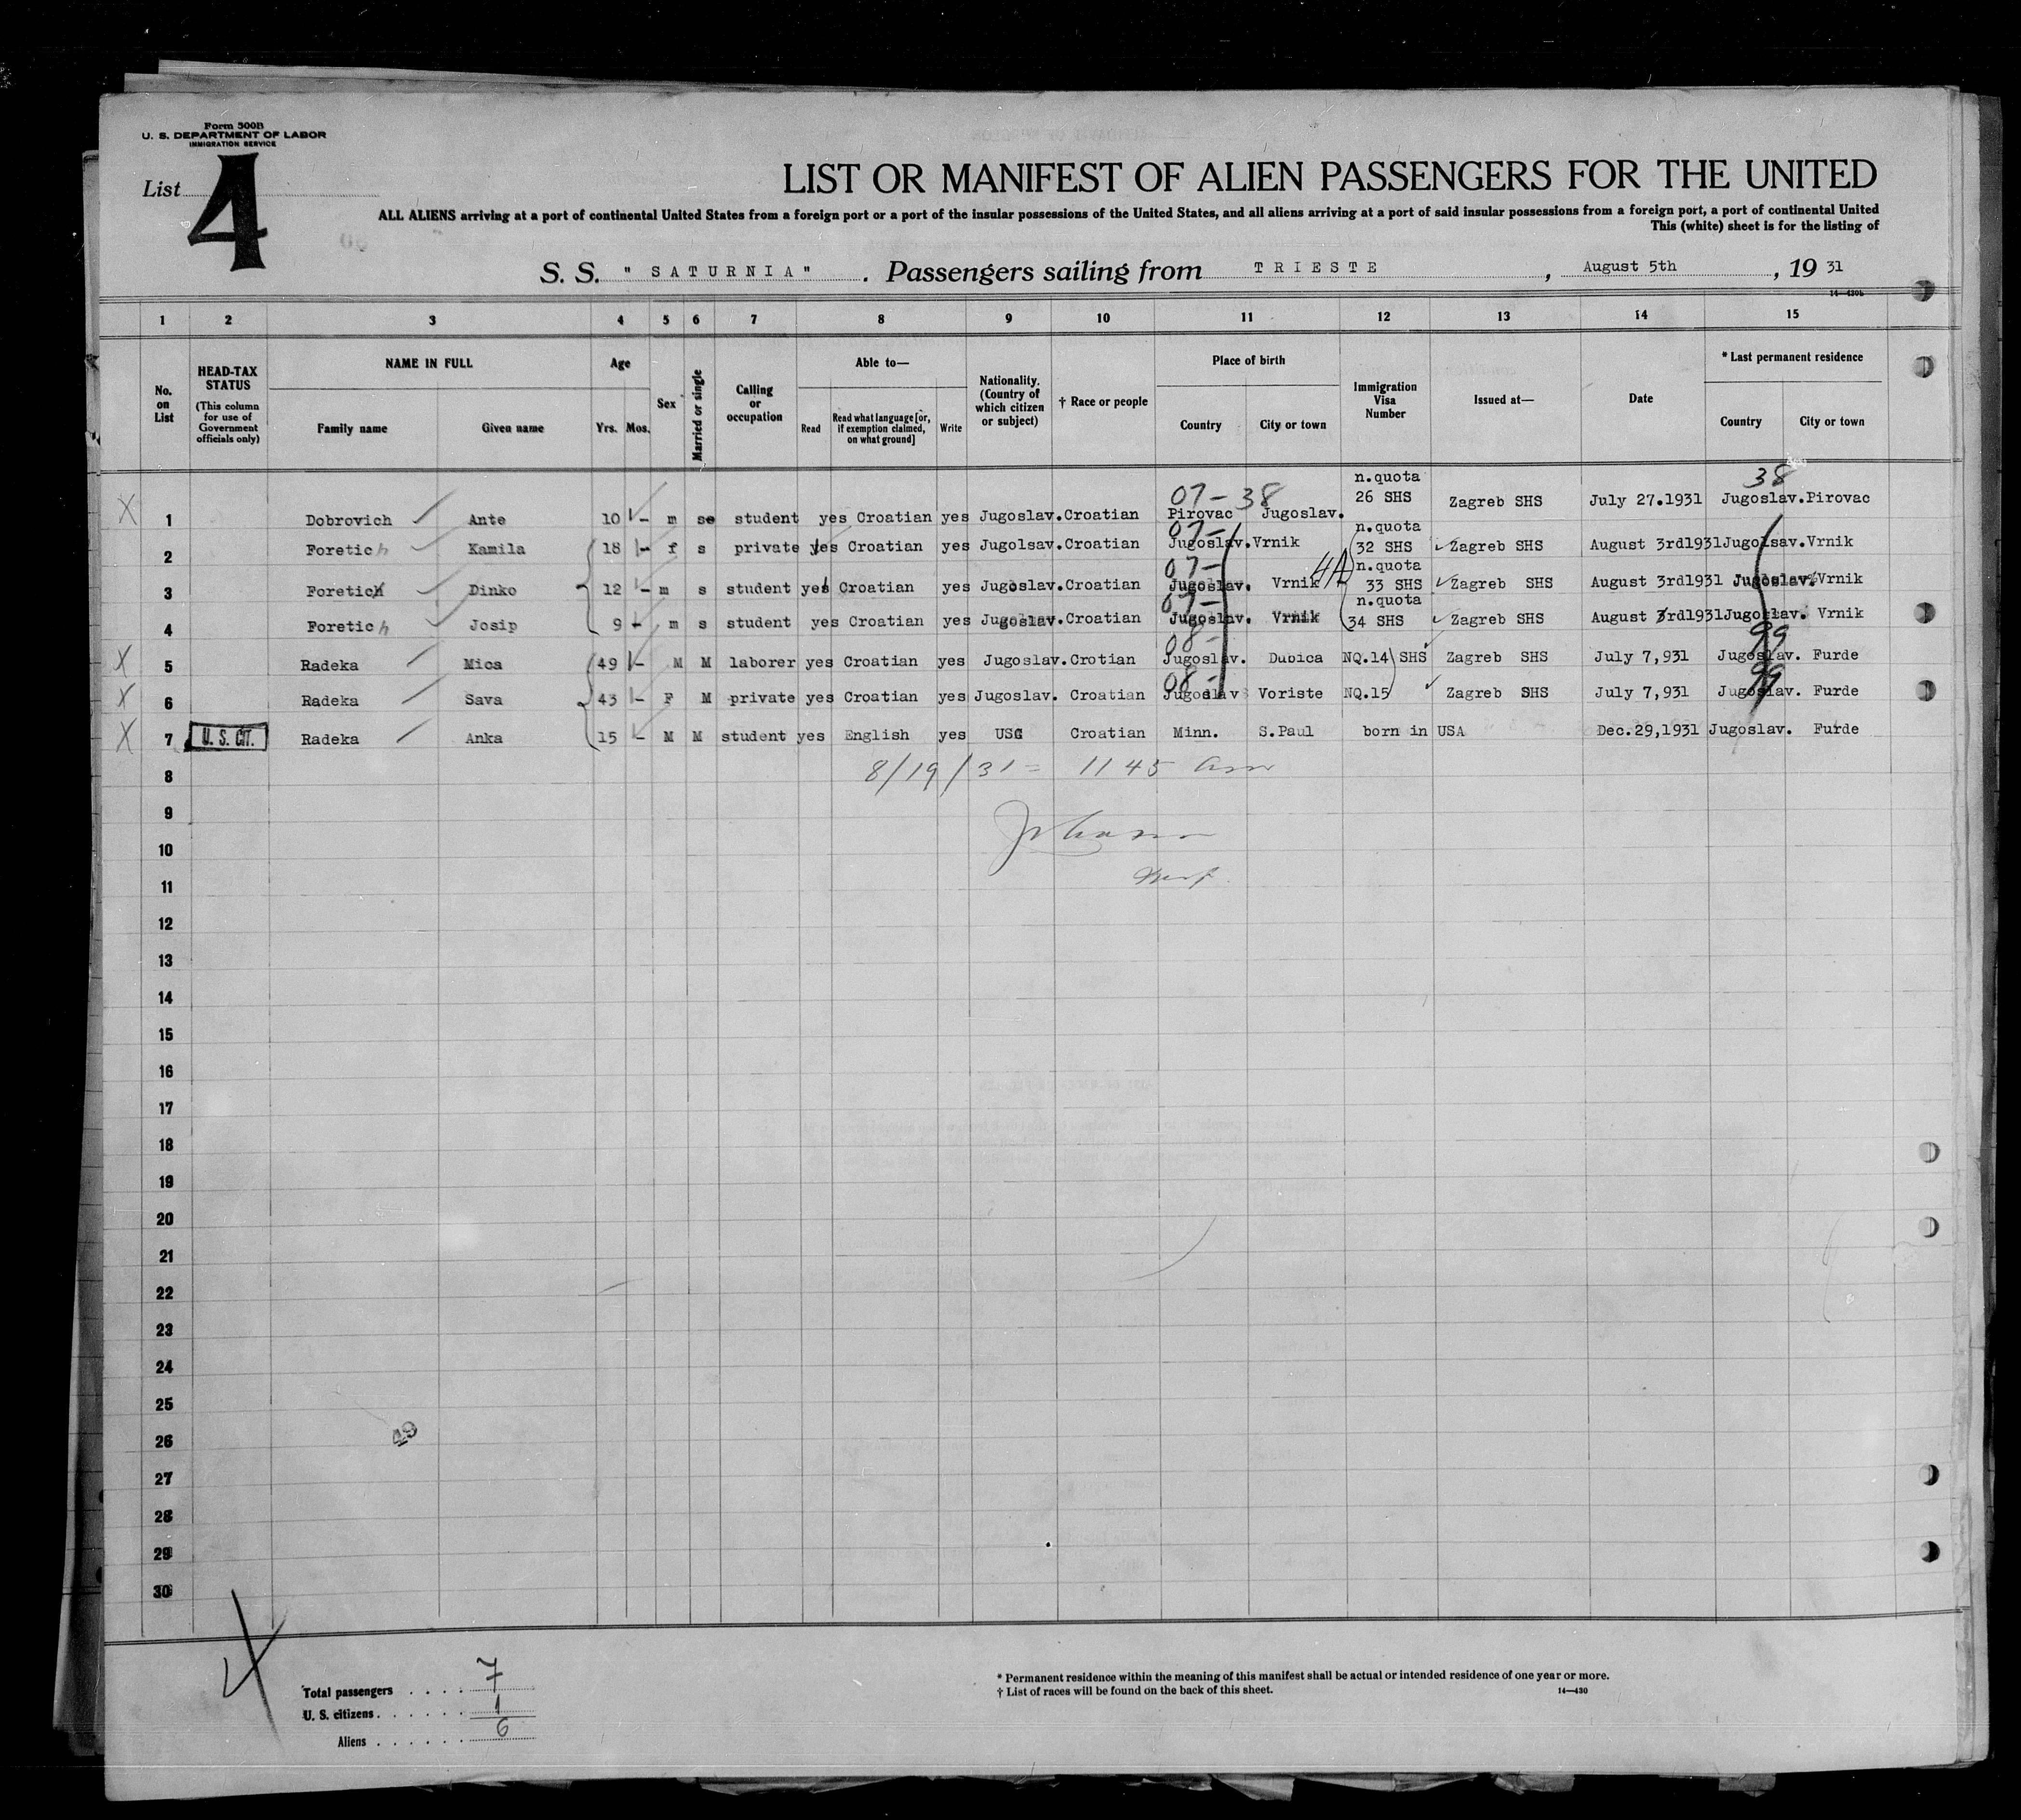 Form 500B
U. S. DEPARTMENT OF LABOR
IMMIGRATION SERVICE
List 4
LIST OR MANIFEST OF ALIEN PASSENGERS FOR THE UNITED
ALL ALIENS arriving at a port of continental United States from a foreign port or a port of the insular possessions of the United States, and all aliens arriving at a port of said insular possessions from a foreign port, a port of continental United
This (white) sheet is for the listing of
S. S. " SATURNIA" . Passengers sailing from TRIESTE , August 5th , 19 31
14—430b
1 2 3 4 5 6 7 8 9 10 11 12 13 14 15
No. on List
HEAD-TAX STATUS
(This column for use of Government officials only)
NAME IN FULL
Family name Given name
Age
Yrs. Mos.
Sex
Married or single
Calling or occupation
Able to—
Read
Read what language [or, if exemption claimed, on what ground]
Write
Nationality. (Country of which citizen or subject)
† Race or people
Place of birth
Country City or town
Immigration Visa Number
Issued at—
Date
* Last permanent residence
Country City or town
07 - 38 n.quota 38
X 1 Dobrovich Ante 10 - m se student yes Croatian yes Jugoslav. Croatian Pirovac Jugoslav. 26 SHS Zagreb SHS July 27.1931 Jugoslav. Pirovac
07 - n.quota
2 Foretich Kamila 18 - f s private yes Croatian yes Jugolsav. Croatian Jugoslav. Vrnik 32 SHS Zagreb SHS August 3rd1931 Jugolsav. Vrnik
07 - 4A n.quota
3 Foretich Dinko 12 - m s student yes Croatian yes Jugoslav. Croatian Jugoslav. Vrnik 33 SHS Zagreb SHS August 3rd1931 Jugoslav. Vrnik
07 - n.quota
4 Foretich Josip 9 - m s student yes Croatian yes Jugoslav. Croatian Jugoslav. Vrnik 34 SHS Zagreb SHS August 3rd1931 Jugoslav. Vrnik
08 - 99
X 5 Radeka Mica 49 - M M laborer yes Croatian yes Jugoslav. Crotian Jugoslav. Dubica NQ.14 SHS Zagreb SHS July 7,931 Jugoslav. Furde
08 - 99
X 6 Radeka Sava 43 - F M private yes Croatian yes Jugoslav. Croatian Jugoslav Voriste NQ.15 Zagreb SHS July 7,931 Jugoslav. Furde
X 7 U. S. CIT. Radeka Anka 15 - M M student yes English yes USC Croatian Minn. S.Paul born in USA Dec.29,1931 Jugoslav. Furde
8 8/19/31 = 11 45 am
9
10
11
12
13
14
15
16
17
18
19
20
21
22
23
24
25
26 49
27
28
29
30
4
Total passengers . . . . 7
U. S. citizens . . . . . . 1
Aliens . . . . . . 6
* Permanent residence within the meaning of this manifest shall be actual or intended residence of one year or more.
† List of races will be found on the back of this sheet. 14—430